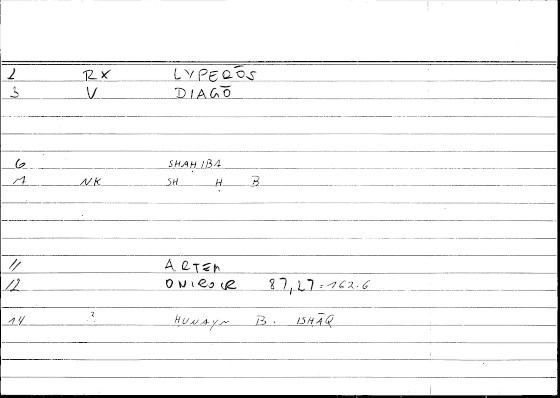 2 RX LYPERŌS
3 V DIAGŌ
6 SHAḤIBA
7 NK SH Ḥ B
11 ARTEM
12 ONIROCR 87,27 = 162.6
14 ? HUNAYN B. ISHĀQ